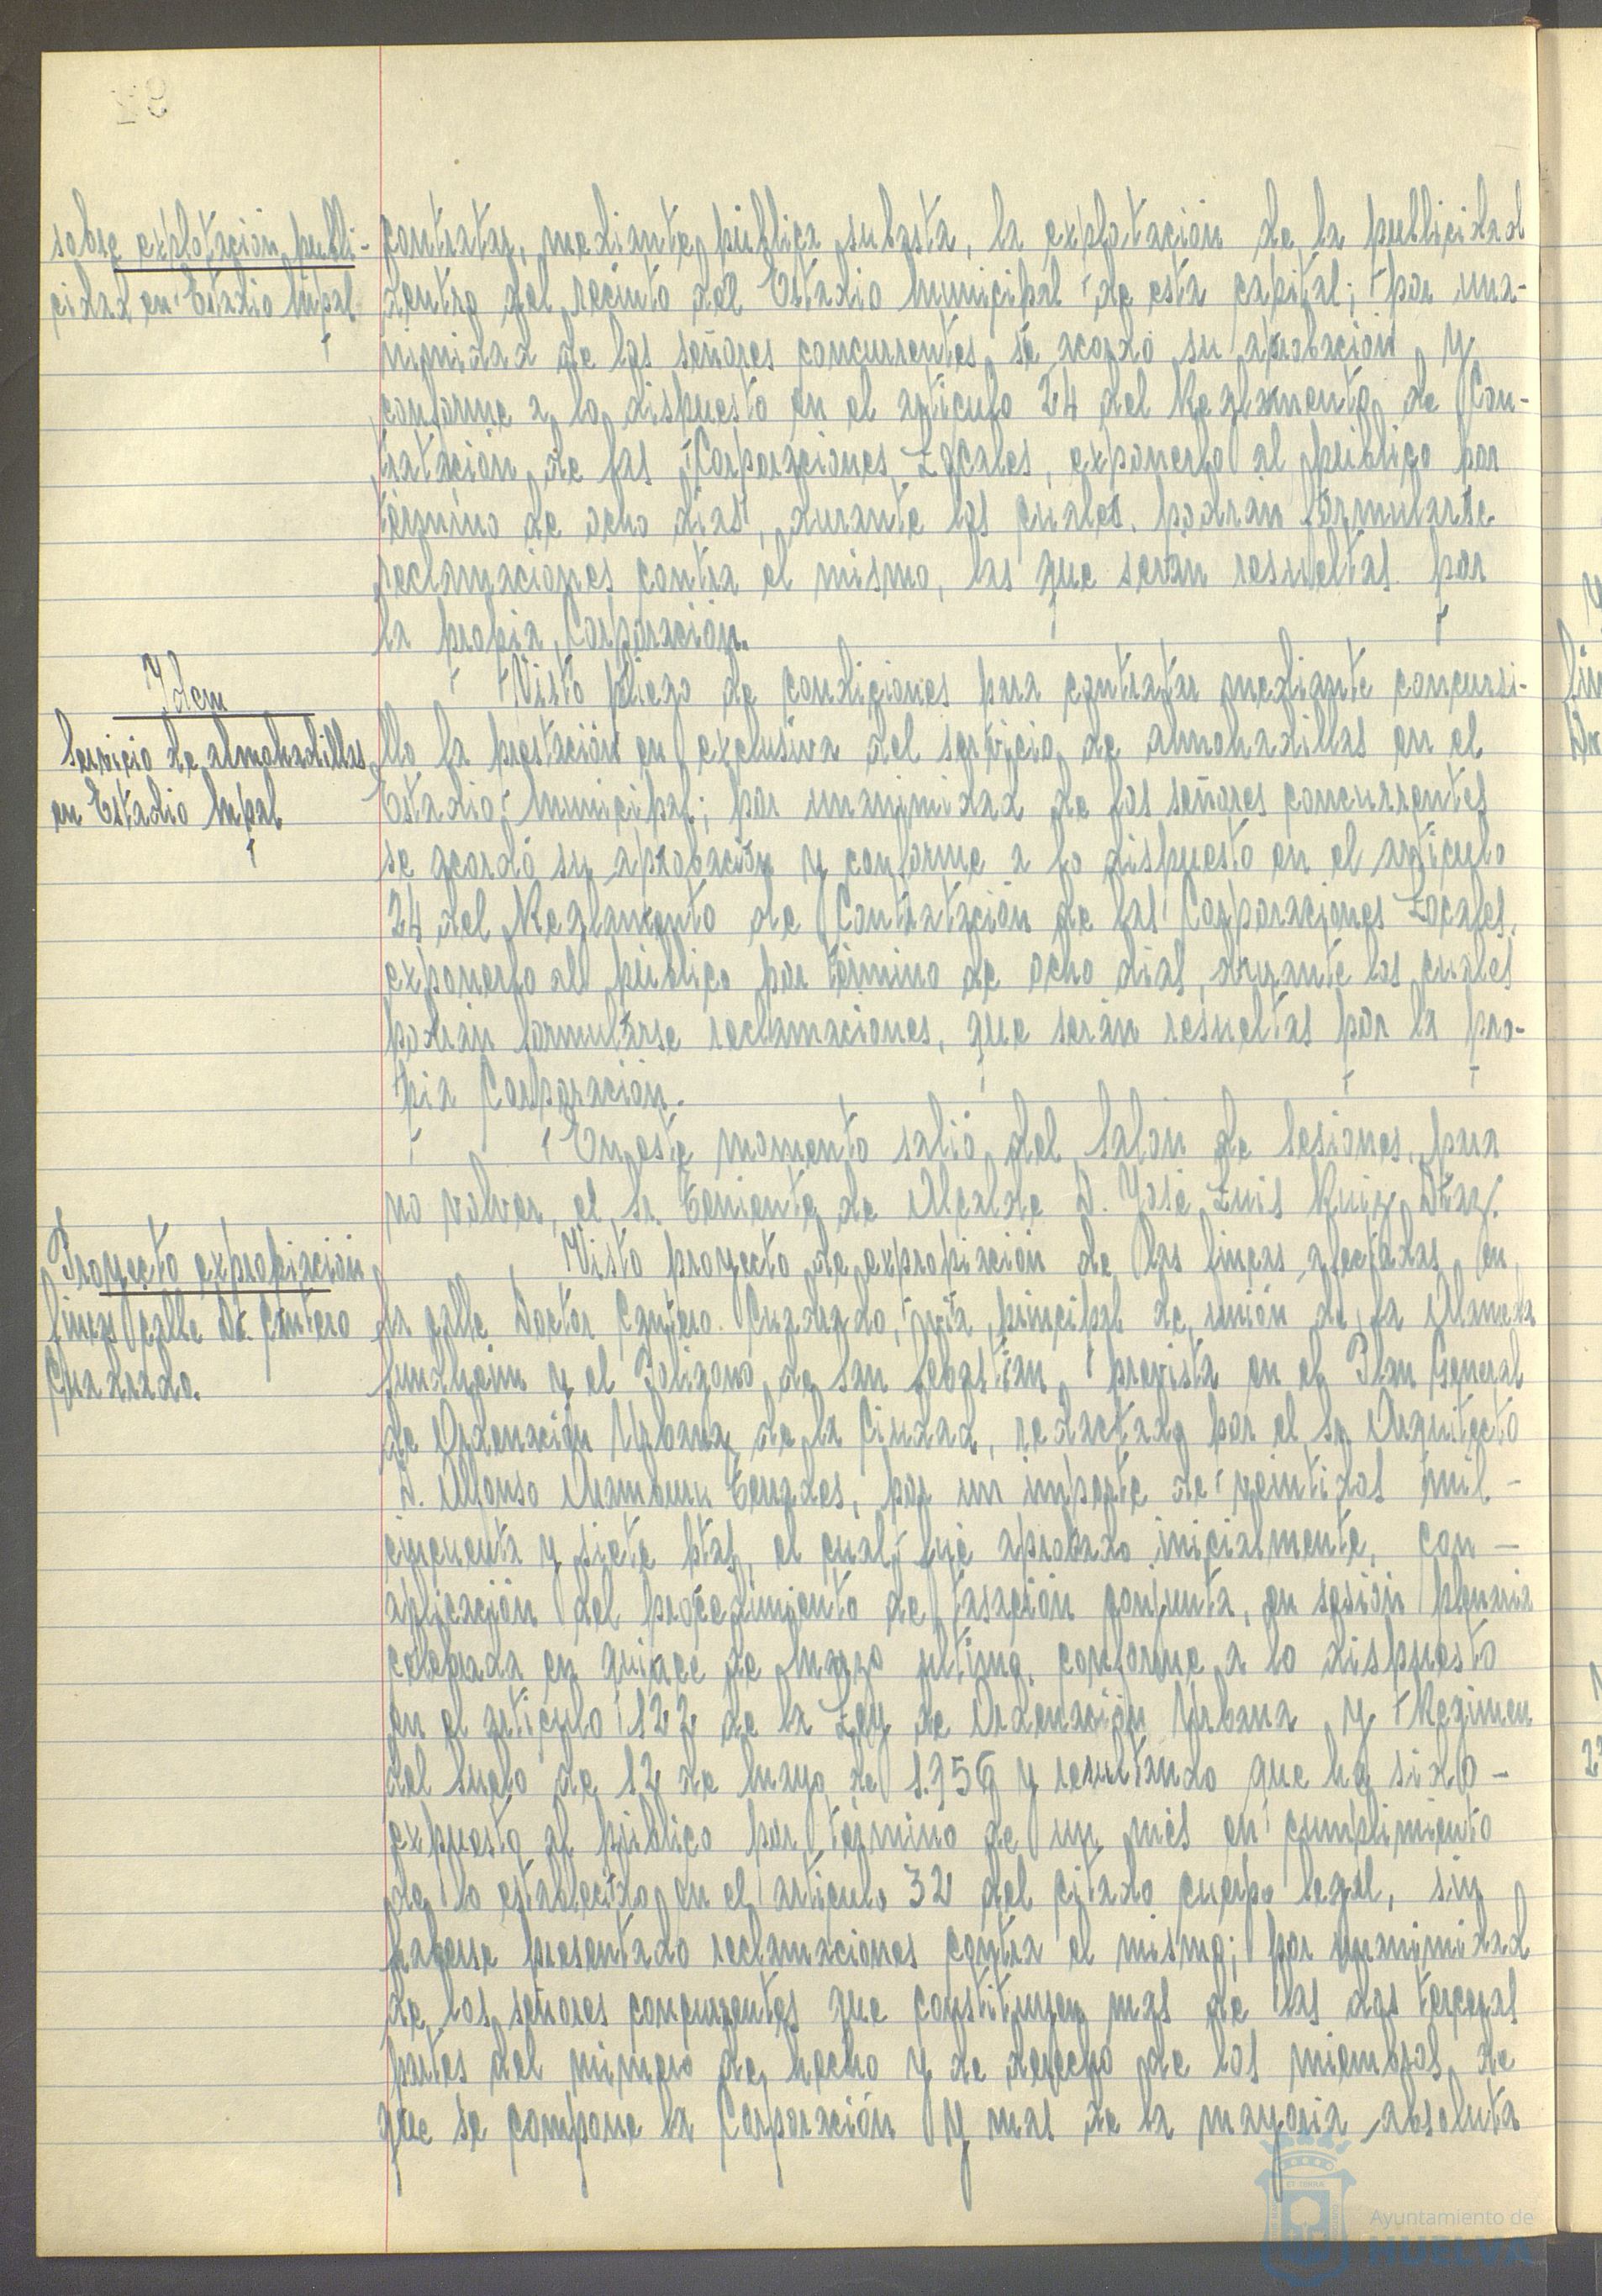 sobre explotación publi-
cidad en Estadio Mpal.
contratar, mediante pública subasta, la explotación de la publicidad
dentro del recinto del Estadio Municipal de esta capital; por una-
nimidad de los señores concurrentes, se acordó su aprobación y
conforme a lo dispuesto en el articulo 24 del Reglamento de Con-
tratación de las Corporaciones Locales, exponerlo al público por
término de ocho dias, durante los cuales, podrán formularse
reclamaciones contra el mismo, las que serán resueltas por
la propia Corporación.
Idem
Servicio de almohadillas
en Estadio Mpal
Visto pliego de condiciones para contratar mediante concursi-
llo la prestación en exclusiva del servicio de almohadillas en el
Estadio Municipal; por unanimidad de los señores concurrentes
se acordó su aprobación y conforme a lo dispuesto en el articulo
24 del Reglamento de Contratación de las Corporaciones Locales,
exponerlo al público por término de ocho dias, durante los cuales
podrán formularse reclamaciones, que serán resueltas por la pro-
pia Corporación.
En este momento salió del Salón de Sesiones, para
no volver, el Sr. Teniente de Alcalde D. José Luis Ruiz Díaz.
Proyecto expropiación
fincas calle Dr. Cantero
Cuadrado.
Visto proyecto de expropiación de las fincas afectadas en
la calle Doctor Cantero Cuadrado, via principal de unión de la Alameda
Sundheim y el Poligono de San Sebastián, prevista en el Plan General
de Ordenación Urbana de la Ciudad, redactado por el Sr. Arquitecto
D. Alfonso Aramburu Terrades, por un importe de veintidos mil -
cincuenta y siete ptas, el cual fué aprobado inicialmente, con -
aplicación del procedimiento de tasación conjunta, en sesión plenaria
celebrada en quince de Marzo último, conforme a lo dispuesto
en el articulo 122 de la Ley de Ordenación Urbana y Regimen
del Suelo de 12 de Mayo de 1.956 y resultando que ha sido -
expuesto al público por término de un mes en cumplimiento
de lo establecido en el articulo 32 del citado cuerpo legal, sin
haberse presentado reclamaciones contra el mismo; por unanimidad
de los señores concurrentes que constituyen mas de las dos terceras
partes del número de hecho y de derecho de los miembros de
que se compone la Corporación y mas de la mayoria absoluta
Ayuntamiento de
HUELVA